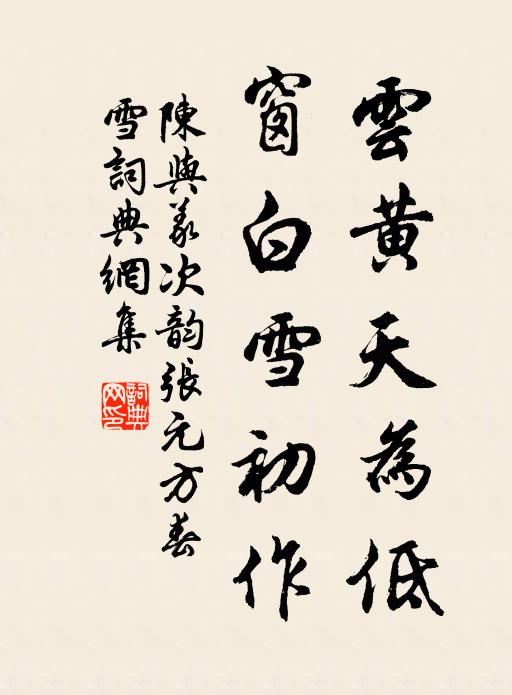 雲黃天為低
窗白雪初作
陳與義次韵張元方春
雪詞典網集
詞典
网印